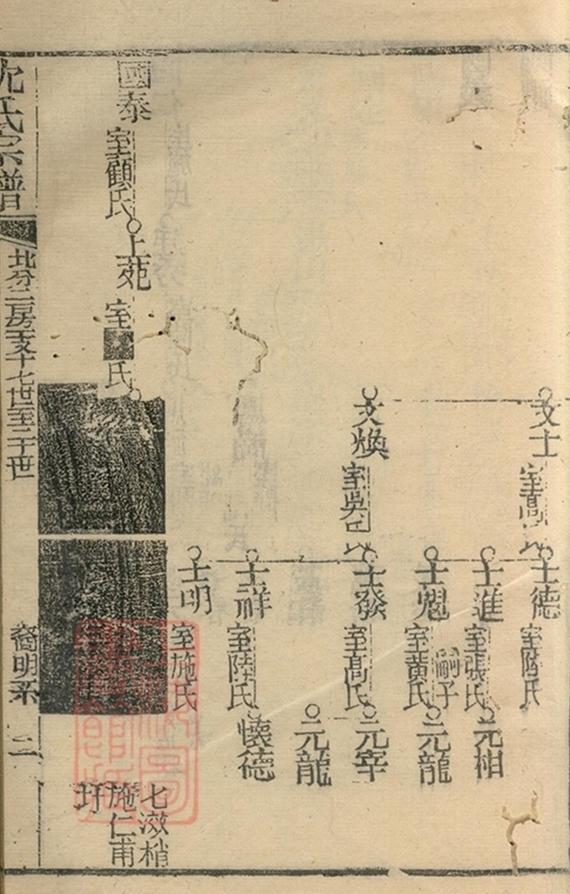 文士 室高氏
士德 室陸氏
士進 室張氏
元相
士魁 室黄氏
嗣子
元龍
文煥 室吳氏
士發 室高氏
元宰
元龍
士祥 室陸氏
懷德
士明 室施氏
國泰 室顧氏
上苑 室 氏
七漵梢
施仁甫
圩
沈氏宗譜
北分二房玉支十七世至二十世
裔明系
二